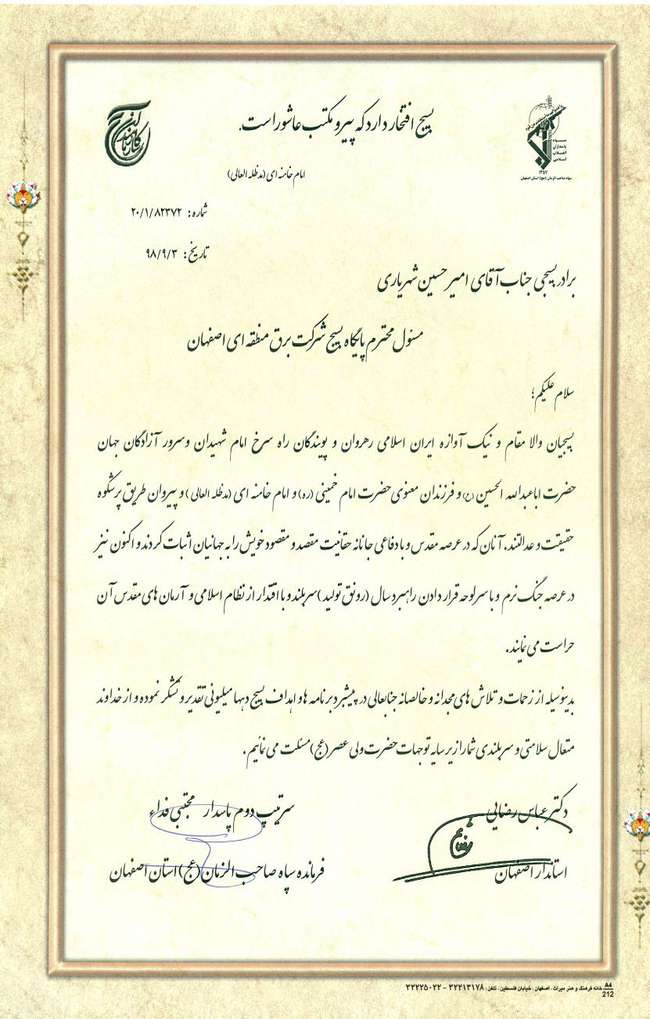 بسیج افتخار دارد که پیرو مکتب عاشوراست.
امام خامنه ای (مدظله العالی)
سپاه
پاسداران
انقلاب
اسلامی
شماره: ۲۰/۱/۸۲۳۷۲
تاریخ: ۹۸/۹/۳
برادر بسیجی جناب آقای امیرحسین شهریاری
مسئول محترم پایگاه بسیج شرکت برق منطقه ای اصفهان
سلام علیکم؛
بسیجیان والا مقام و نیک آوازه ایران اسلامی رهروان و پویندگان راه سرخ امام شهیدان وسرور آزادگان جهان
حضرت اباعبدالله الحسین (ع) و فرزندان معنوی حضرت امام خمینی (ره) و امام خامنه ای (مدظله العالی) و پیروان طریق پرشکوه
حقیقت و عدالتند. آنان که در عرصه مقدس و با دفاعی جانانه حقانیت مقصد و مقصود خویش را به جهانیان اثبات کردند و اکنون نیز
در عرصه جنگ نرم و با سرلوحه قرار دادن راهبرد سال (رونق تولید) سربلند و با اقتدار از نظام اسلامی و آرمان های مقدس آن
حراست می نمایند.
بدینوسیله از زحمات و تلاش های مجدانه و خالصانه جنابعالی در پیشبرد برنامه ها و اهداف بسیج دهها میلیونی تقدیر و تشکر نموده و از خداوند
متعال سلامتی و سربلندی شما را زیر سایه توجهات حضرت ولی عصر (عج) مسئلت می نمائیم.
دکتر عباس رضائی
استاندار اصفهان
سرتیپ دوم پاسدار مجتبی فداء
فرمانده سپاه صاحب الزمان (عج) استان اصفهان
خانه فرهنگ و هنر میراث، اصفهان، خیابان فلسطین، تلفن: ۳۲۲۱۳۱۷۸ - ۳۲۲۲۵۰۲۲
A4
212